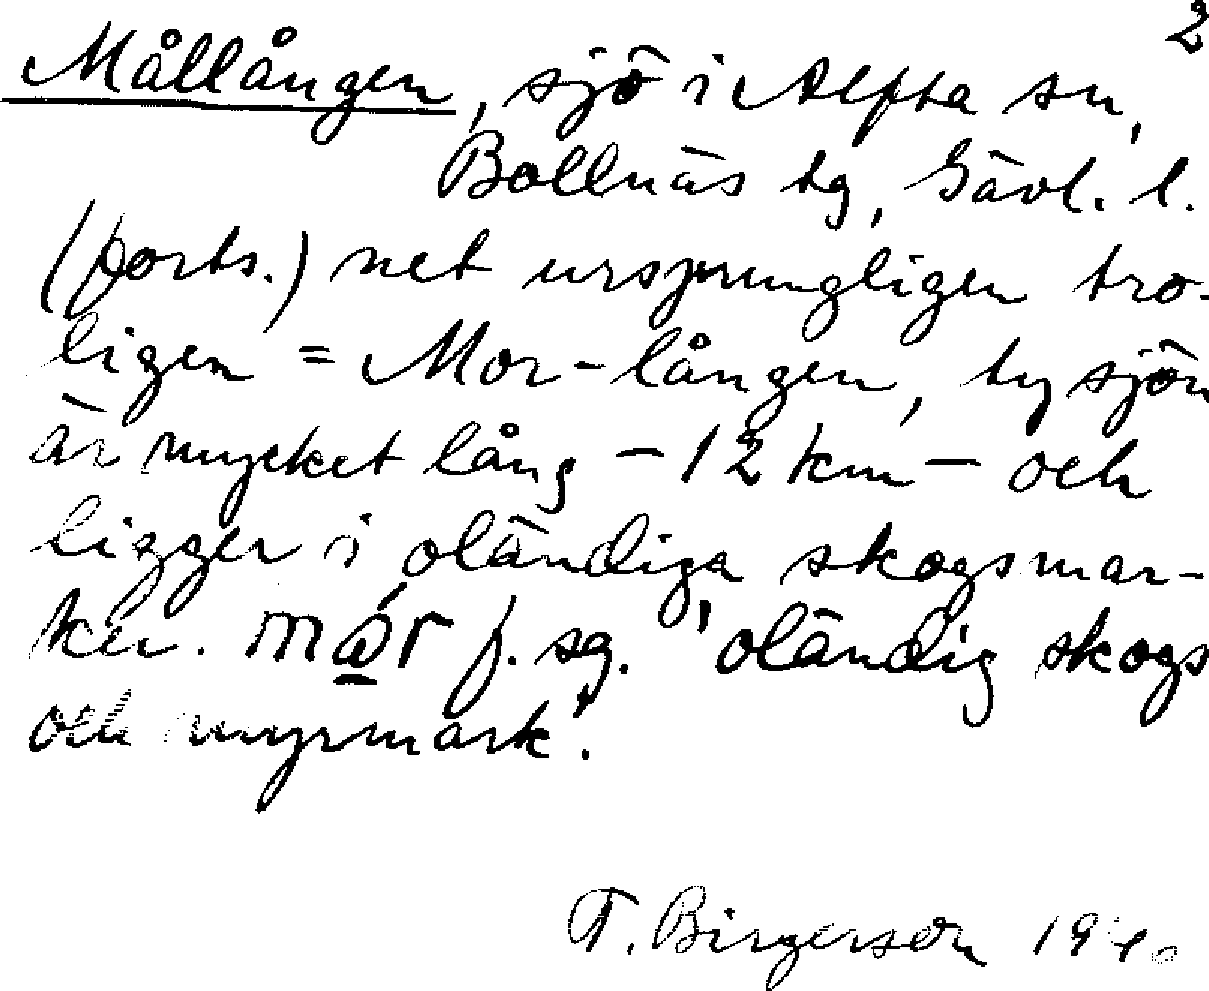 2
Mållången, sjö i Alfta sn,
Bollnäs tg, Gävl. l.
(forts.) net ursprungligen tro-
ligen = Mor-lången, ty sjön
är mycket lång – 12 km – och
ligger i oländiga skogsmar-
ker. mɷ́r f. sg. 'oländig skogs
och myrmark'.
T. Birgerson